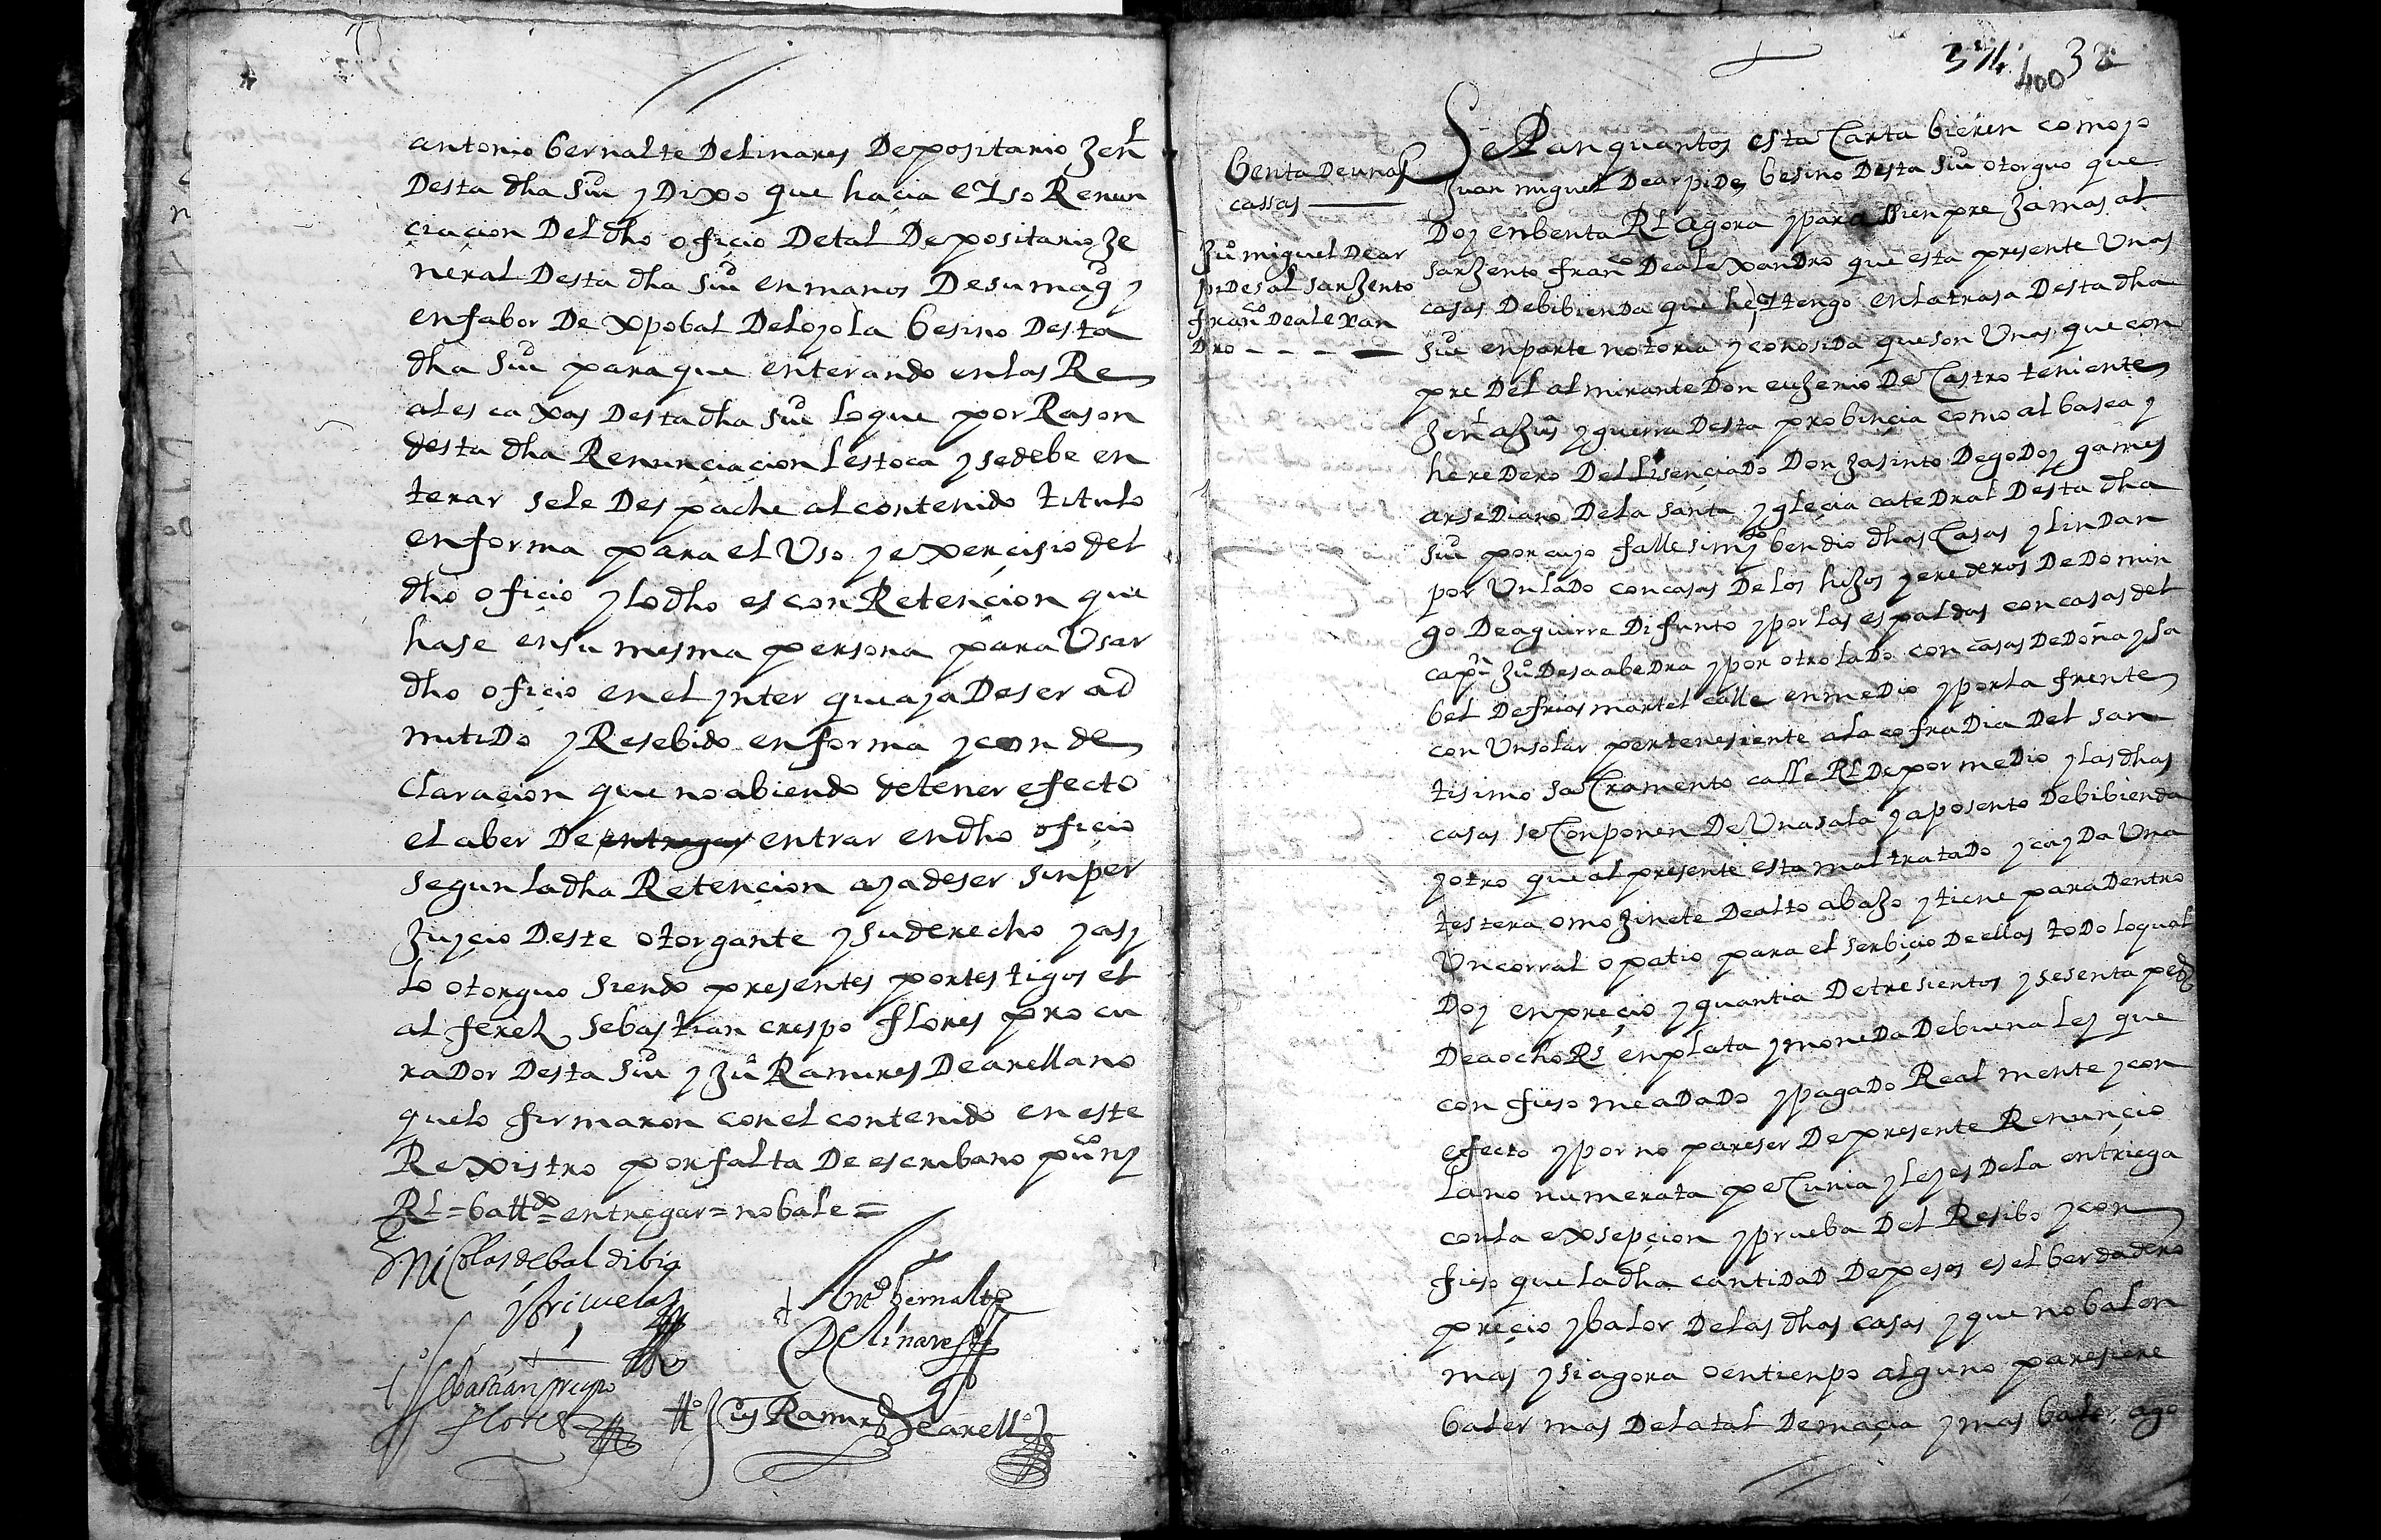 antonio bernalte Delinares Depositario Zenl
Desta dha Siu y Dixo que haçia e Yso Renun
çiaçion Del dho ofiçio Detal Depositario Ze
neral Desta dha Siu enmanos Desumagd y
enfabor De xpobal Deloyola besino Desta
dha Siu paraque enterando enlas Re
ales caxas Destadha Siu loque por Rason
desta dha Renunçiaçion lestoca y sedebe en
terar sele Despache alcontenido titulo
enforma para el Uso y experçisio del
dho ofiçio y lo dho es con Retençion que
hase ensu mesma persona para Usar
dho ofiçio enel ynter queaya Deser ad
mitiDo y Resebido enforma y con de
claraçion que noabiendo detener efecto
el aber De entregar entrar endho ofiçio
segun ladha Retençion ayadeser sinper
Zuyçio Deste otorgante y suderecho y asy
lo otorguo siendo presentes portestigos el
alferez sebastian crespo flores procu
raDor Desta Siu y Zuo Ramires Dearellano
quelo firmaron conel contenido eneste
Rexistro porfalta De escribano puco ny
Rl = battdo = entregar = nobale =
Nicolas debaldibia
y briçuela
Anto bernalte
Delinares
Sebastian crespo
flores
to Jus Ramires Dearello
374 400 32
benta Deunas
cassas
Zuo miguel Dear
piDes al sarZento
franco Dealexan
Dro
SePan quantos esta Carta bieren como yo
Juan miguel Dearpides besino Desta Siu otorguo que
Doy enbenta Rl agora y para ssienpre Zamas al
sarZento franco DealexanDro que esta presente Unas
casas Debibienda que he y tengo enlatrasa Desta dha
Siu enparte notoria y conosiDa queson Unas que con
pre Del almirante Don euZenio De Castro teniente
Zenl aZus y guerra Desta probinçia como albasea y
hereDero Del lisençiado Don Zasinto Degodoy games
arseDiano Dela santa ygleçia cateDral Desta dha
Siu por cuyo fallesimyo bendio dhas Casas y linDan
por UnlaDo concasas Delos hiZos y erederos DeDomin
go Deaguirre Difunto y por las espaldas concasas del
capn Zuo DesaabeDra y por otro laDo con casas DeDoña ysa
bel Defrias martel calle enmeDio y porla frente
con Unsolar pertenesiente ala cofraDia Del san
tisimo saCramento calle Rl Depor meDio y las dhas
casas seConponen De Unasala y aposento Debibienda
y otro que al presente esta maltrataDo y cayDa Una
testera omoZinete Dealto abaZo y tiene paraDentro
Uncorral o patio para el serbiçio Deellas toDo loqual
Doy enpreçio y quantia Detresientos y sesenta peds
Deaocho Rs enplata y moneDa Debuena ley que
confieso meadaDo y pagaDo Real mente y con
efecto y por no pareser Depresente Renunçio
lano numerata peCunia y leyes Dela entriega
conla exsepçion y prueba Del Resibo y con
fieso que ladha cantiDaD Depesos esel berdadero
preçio y balor Delas dhas casas y que nobalen
mas y si agora oentienpo alguno paresiere
baler mas Delatal Demaçia y mas baler, ago